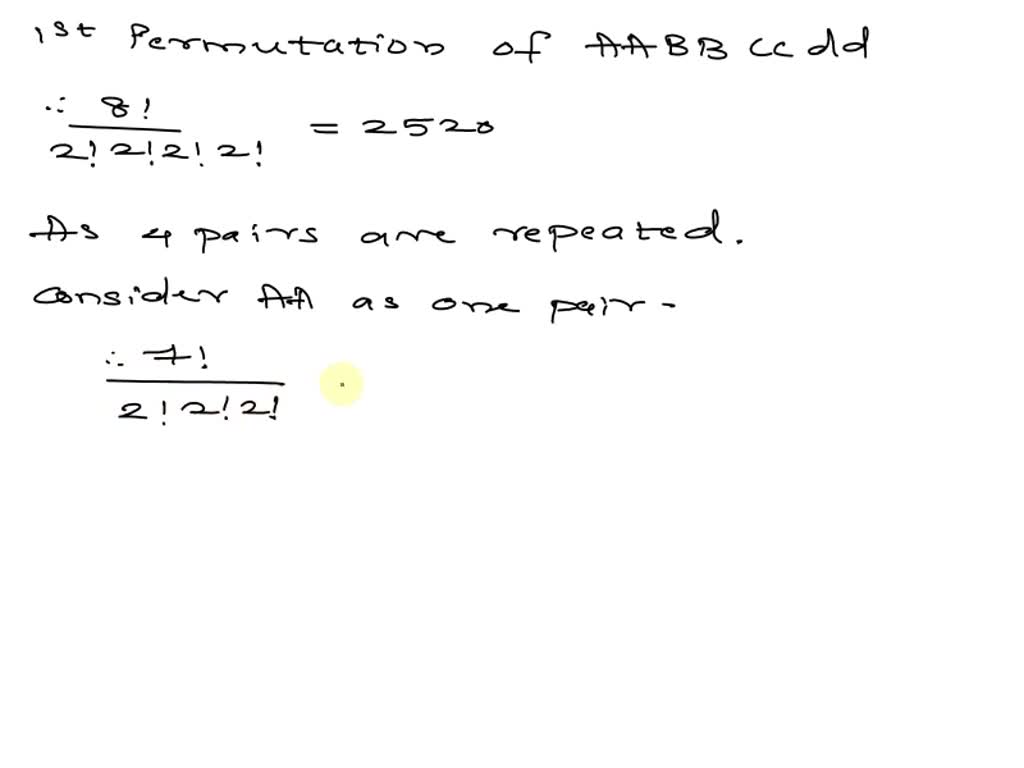 1st Permutation of AABB cc dd
∴ 8!
2! 2! 2! 2!
= 2520
As 4 pairs are repeated.
Consider AA as one pair -
∴ 7!
2! 2! 2!